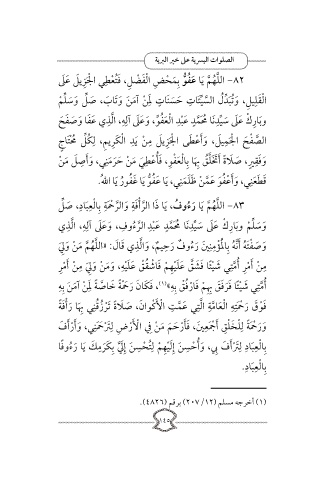 الصلوات اليسرية على خير البرية
٨٢- اللَّهُمَّ يَا عَفُوُّ بِمَحْضِ الْفَضْلِ، فَتُعْطِي الْجَزِيلَ عَلَى
الْقَلِيلِ، وَتُبَدِّلُ السَّيِّئَاتِ حَسَنَاتٍ لِمَنْ آمَنَ وَتَابَ، صَلِّ وَسَلِّمْ
وبَارِكْ عَلَى سَيِّدِنَا مُحَمَّدٍ عَبْدِ الْعَفُوِّ، وَعَلَى آلِهِ، الَّذِي عَفَا وَصَفَحَ
الصَّفْحَ الْجَمِيلَ، وَأَعْطَى الْجَزِيلَ مِنْ يَدِ الْكَرِيمِ، لِكُلِّ مُحْتَاجٍ
وَفَقِيرٍ، صَلَاةً أَتَخَلَّقُ بِهَا بِالْعَفْوِ، فَأُعْطِيَ مَنْ حَرَمَنِي، وَأَصِلَ مَنْ
قَطَعَنِي، وَأَعْفُوَ عَمَّنْ ظَلَمَنِي، يَا عَفُوُّ يَا غَفُورُ يَا اللهُ.
٨٣- اللَّهُمَّ يَا رَءُوفُ، يَا ذَا الرَّأْفَةِ وَالرَّحْمَةِ بِالْعِبَادِ، صَلِّ
وَسَلِّمْ وَبَارِكْ عَلَى سَيِّدِنَا مُحَمَّدٍ عَبْدِ الرَّءُوفِ، وَعَلَى آلِهِ، الَّذِي
وَصَفْتَهُ أَنَّهُ بِالْمُؤْمِنِينَ رَءُوفٌ رَحِيمٌ، وَالَّذِي قَالَ: «اللَّهُمَّ مَنْ وَلِيَ
مِنْ أَمْرِ أُمَّتِي شَيْئًا فَشَقَّ عَلَيْهِمْ فَاشْقُقْ عَلَيْهِ، وَمَنْ وَلِيَ مِنْ أَمْرِ
أُمَّتِي شَيْئًا فَرَفَقَ بِهِمْ فَارْفُقْ بِهِ»(١)، فَكَانَ رَحْمَةً خَاصَّةً لِمَنْ آمَنَ بِهِ
فَوْقَ رَحْمَتِهِ الْعَامَّةِ الَّتِي عَمَّتِ الْأَكْوَانَ، صَلَاةً تَرْزُقُنِي بِهَا رَأْفَةً
وَرَحْمَةً لِلْخَلْقِ أَجْمَعِينَ، فَأَرْحَمَ مَنْ فِي الْأَرْضِ لِتَرْحَمَنِي، وَأَرْأَفَ
بِالْعِبَادِ لِتَرْأَفَ بِي، وَأُحْسِنَ إِلَيْهِمْ لِتُحْسِنَ إِلَيَّ بِكَرَمِكَ يَا رَءُوفًا
بِالْعِبَادِ.
(١) أخرجه مسلم (١٢/ ٢٠٧) برقم (٤٨٢٦).
١٤٥